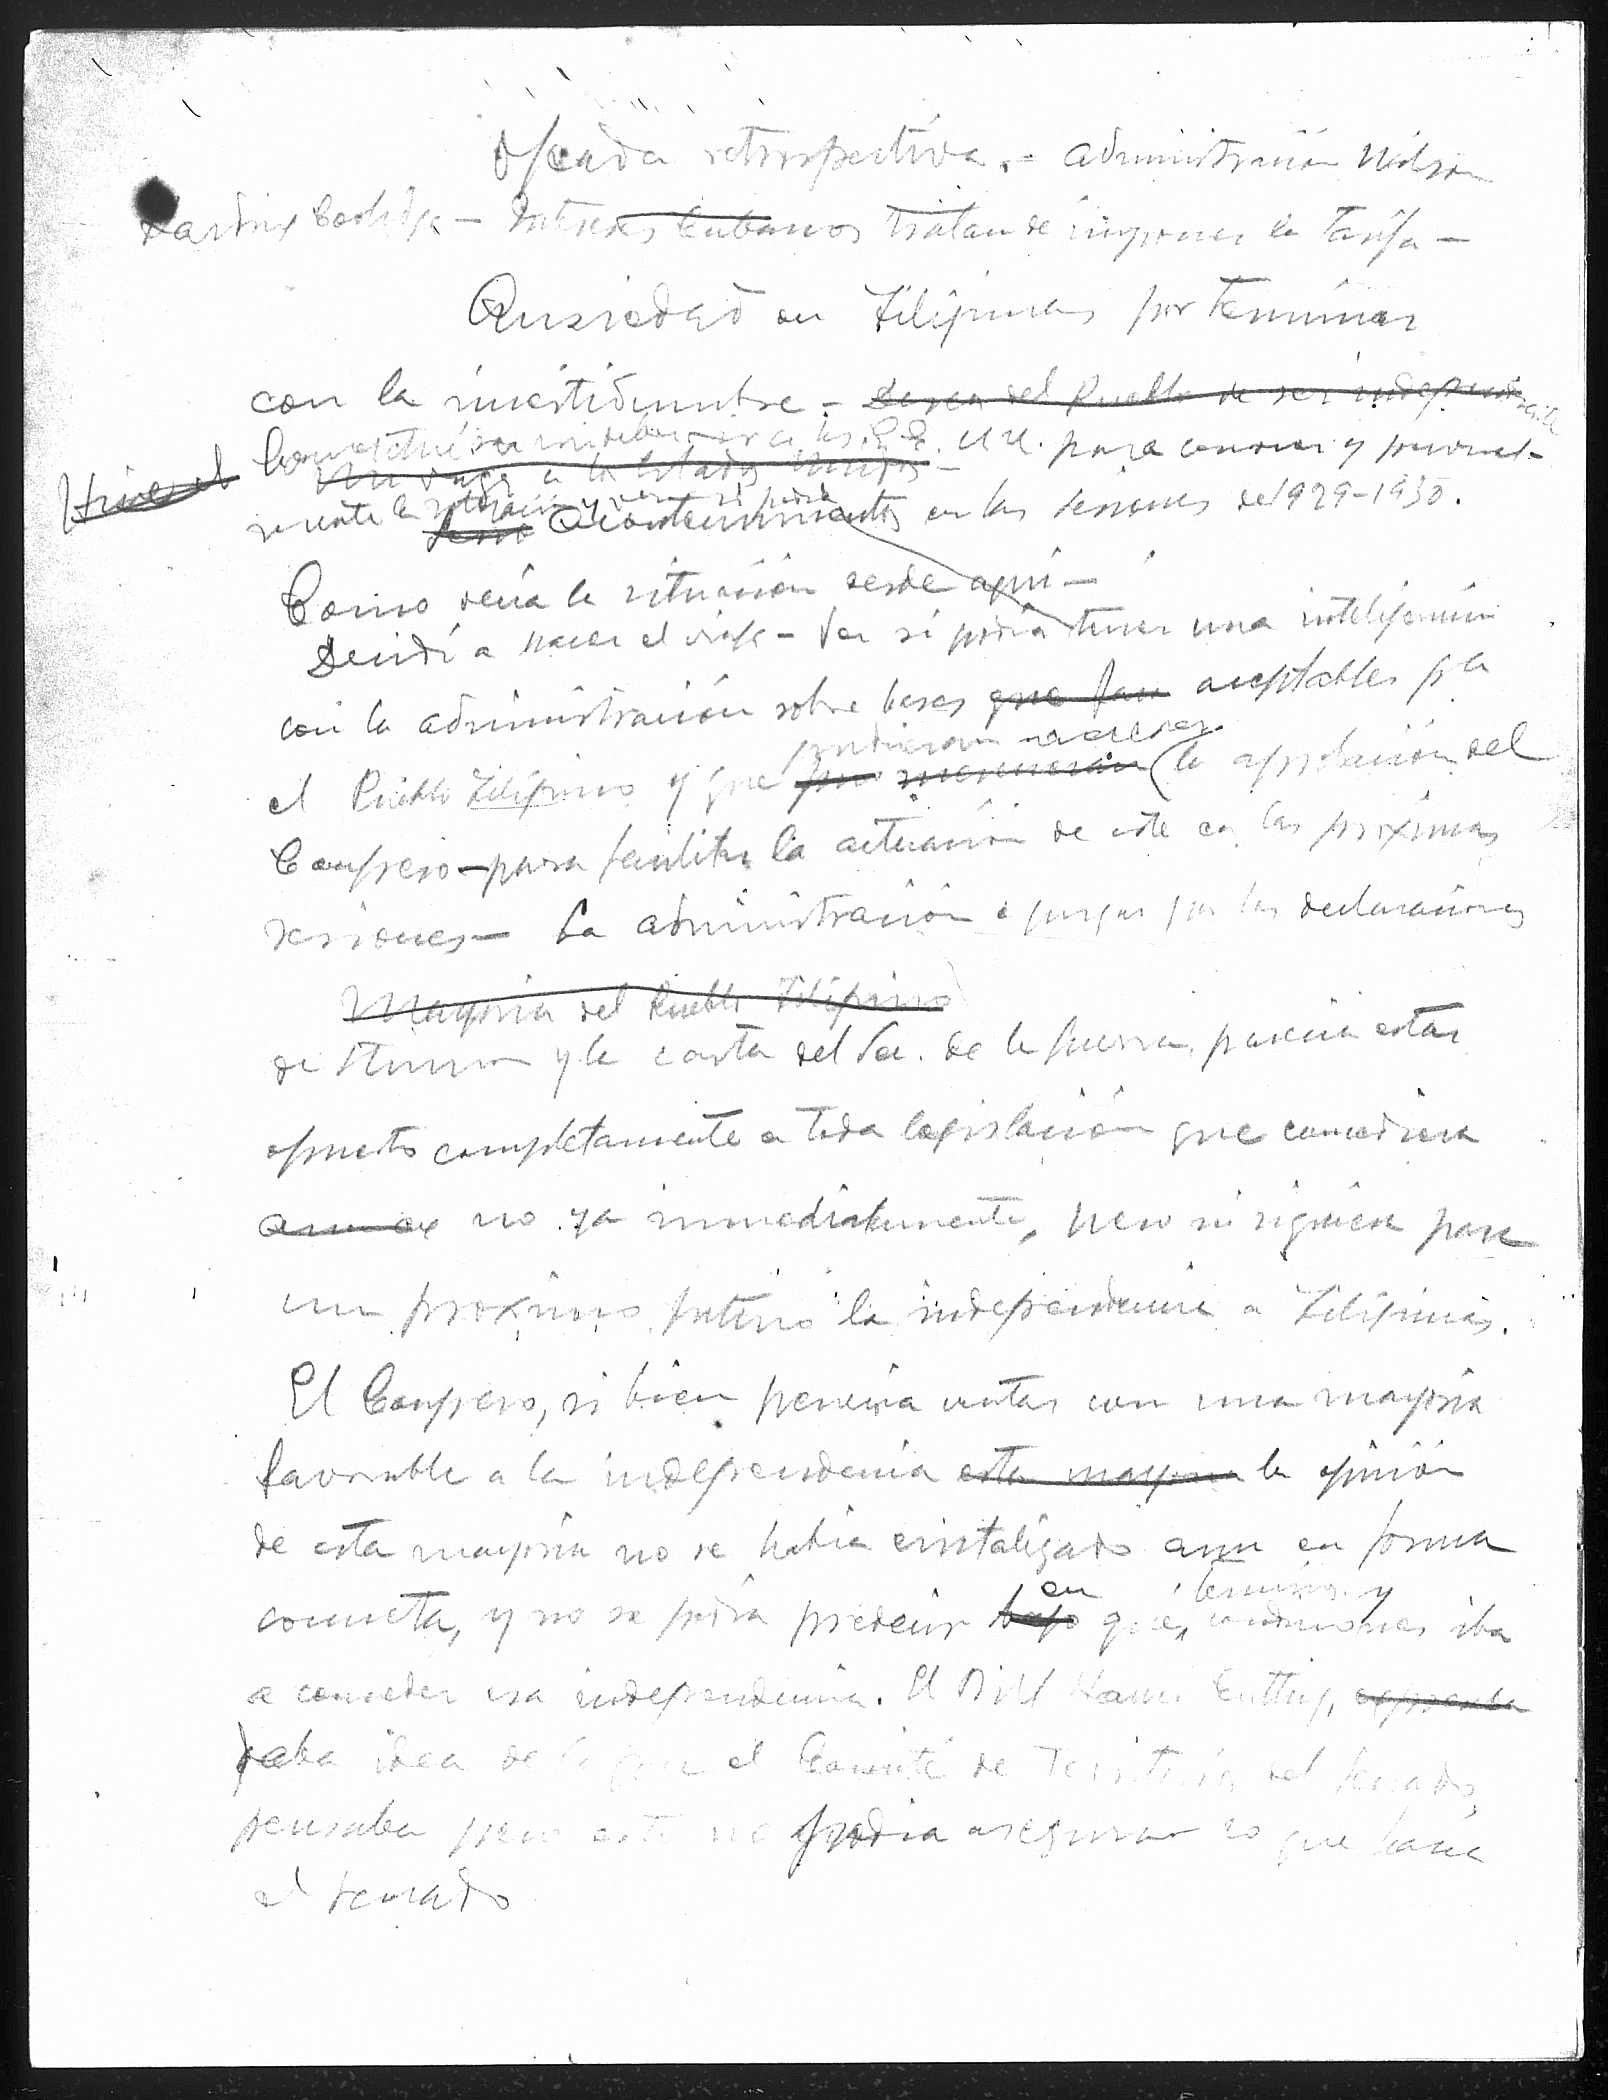 Ojeada retrospectiva.- Administración Wilson
Harding Coolidge - Intereses Cubanos tratan de imponer la tarifa -
Ansiedad en Filipinas por terminar
con la incertidumbre - Deseo del Pueblo de ser independiente
a los EE. UU. para conocer y personal-
Mi viaje a los Estados Unidos -
mente la situación y ver si podia
Acontecimientos en las sesiones de 1929-1930.
Como veía la situación desde aqui -
Decidí a hacer el viaje - Ver si podia tener una inteligencia
con la administración sobre bases que fuesen aceptables pa
el Pueblo Filipino y que pudieran merecer la aprobación del
Congreso - para facilitar la actuación de este en las próximas
sesiones - La administración a juzgar por las declaraciones
Mayoria del Pueblo Filipino
de Stimson y la carta del Sec. de la Guerra, parecia estar
opuesto completamente a toda legislación que concediera
no ya inmediatamente, pero ni siquiera para
un proximo futuro la independencia a Filipinas.
El Congreso, si bien parecia contar con una mayoria
favorable a la independencia esta mayoria la opinión
de esta mayoria no se habia cristalizado aun en forma
concreta, y no se podia predecir bajo en que terminos y condiciones iba
a conceder esa independencia. El Bill Hawes Cutting,
daba idea de lo que el Comité de Territorios del Senado,
pensaba pero este no podia asegurar lo que haria
el Senado